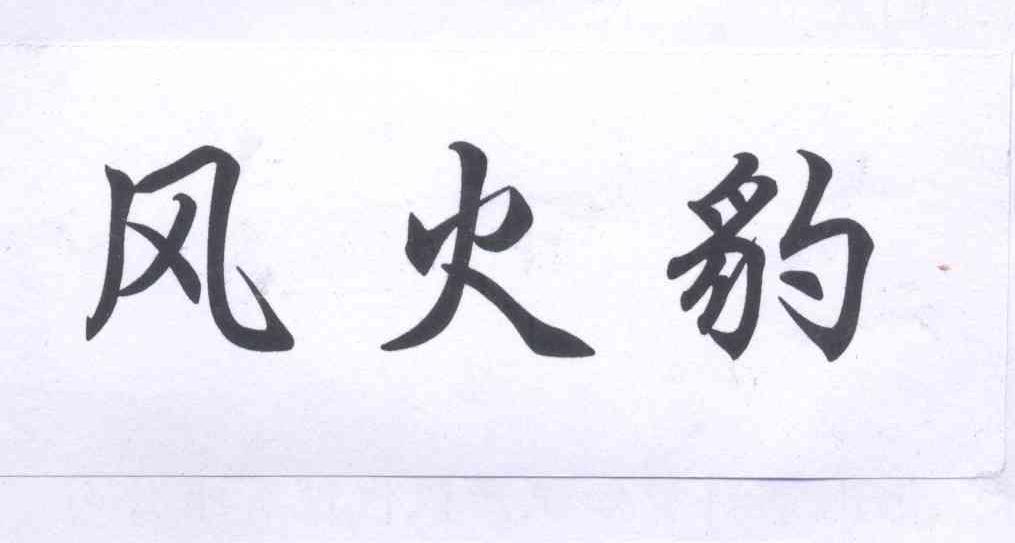 风火豹